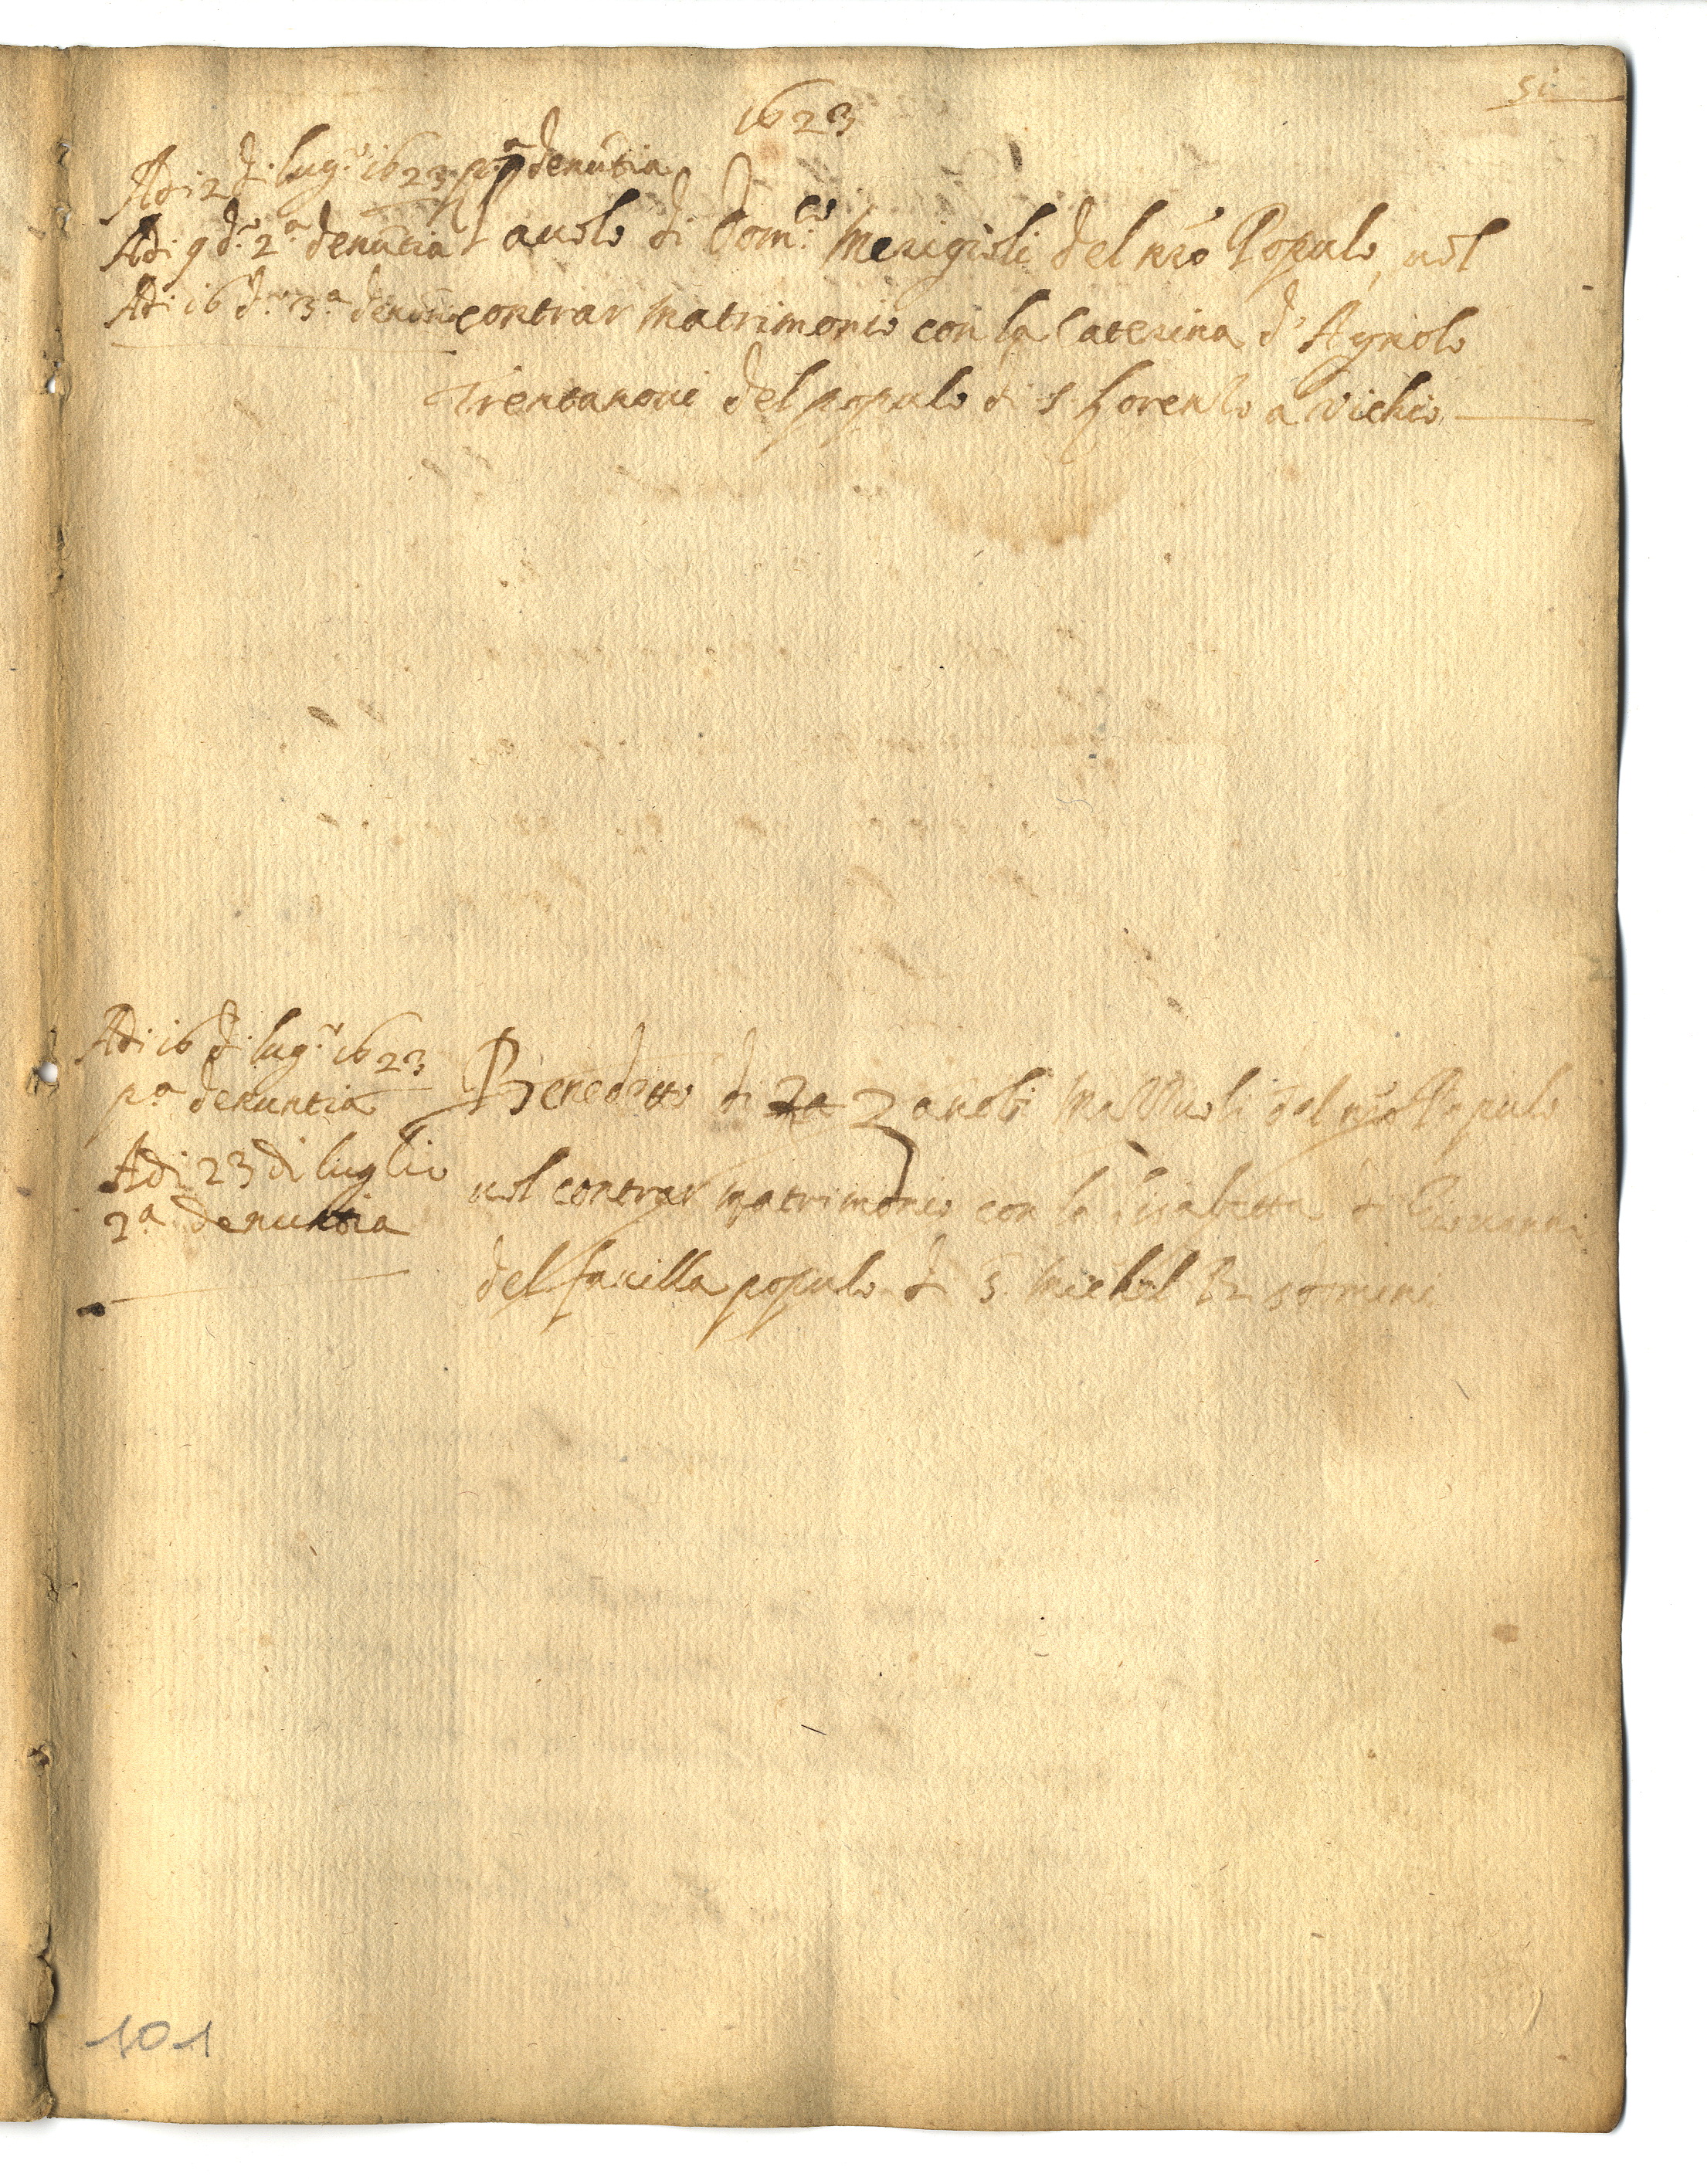 51
1623
Adi 2 d. lug.o 1623 p.a denũtia
Adi 9 d.o 2.a denũtia
Adi 16 d.o 3.a denũ
Pauolo di Dom.co Merigioli del nrõ Populo uol
contrar matrimonio con la Caterina d'Agnolo
Trentanoui del populo di s Lorenzo a Vichio
Adi 16 d. lug.o 1623
p.a denuntia
Adi 23 di luglio
2a denuntia
Benedetto di Za Zanobi Mazzuoli del nrõ Populo
uol contrar matrimonio con la Lisabetta di Giouanni
del facilla populo di S. Michel
101